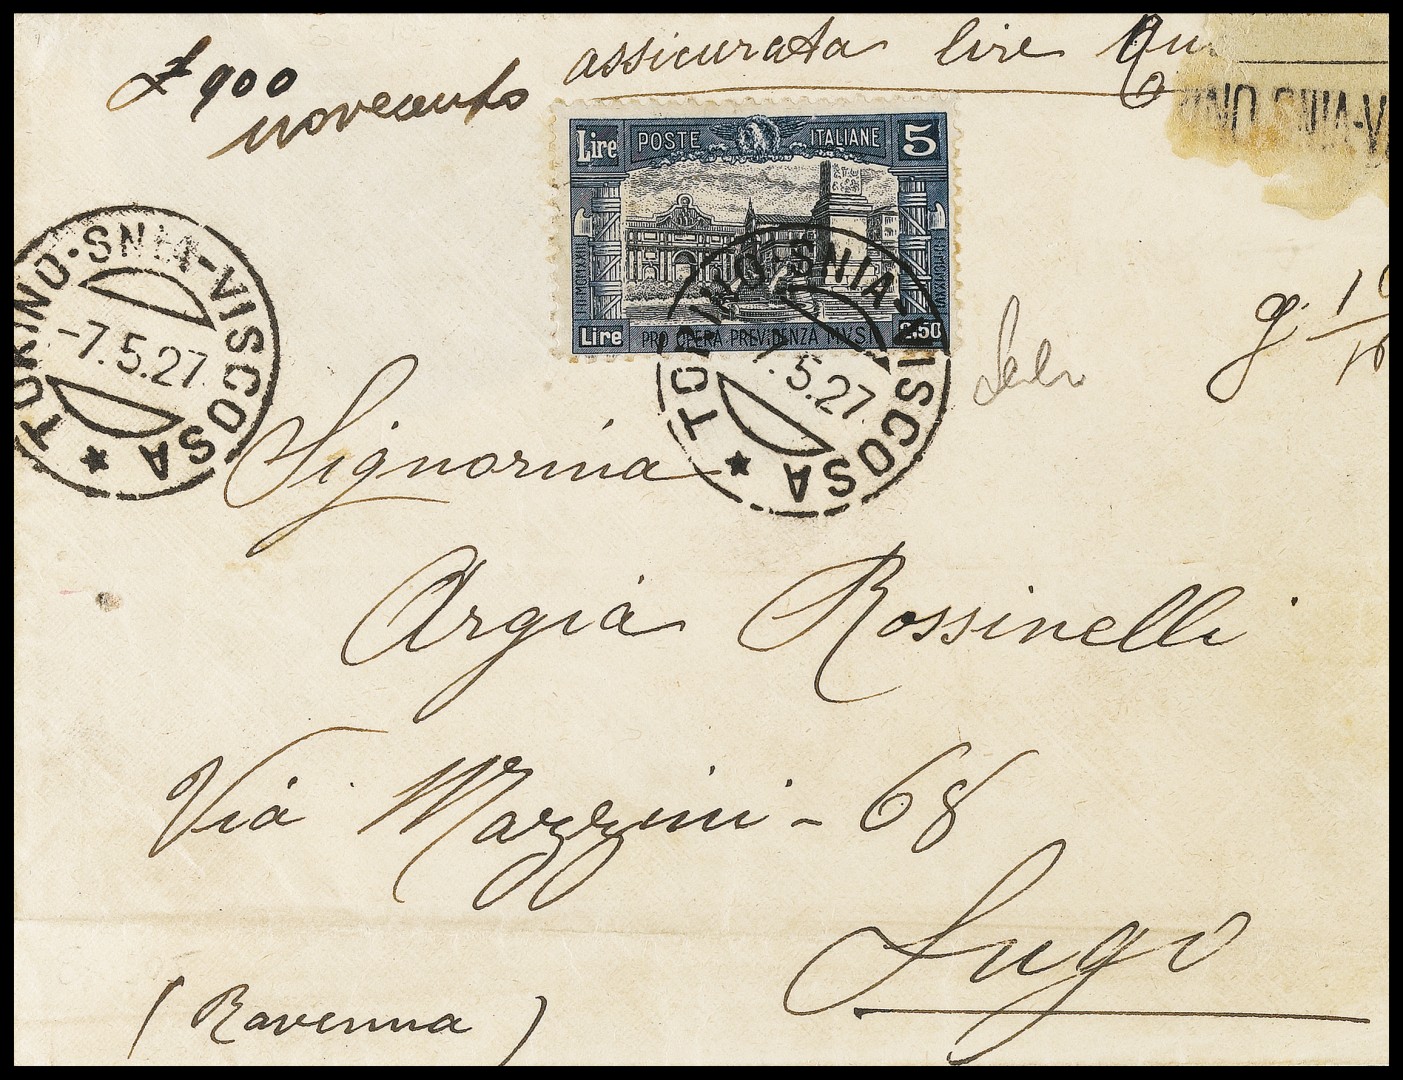 assicurata lire
£ 900
novecento
RINO SNIA-V
Lire POSTE ITALIANE 5
Lire PRO OPERA PREVIDENZA MVST 2.50
TORINO·SNIA-VISCOSA
-7.5.27.
TORINO·SNIA-VISCOSA
7.5.27.
g. 10
Signorina
Argia Rossinelli
Via Mazzini - 68
Lugo
(Ravenna)